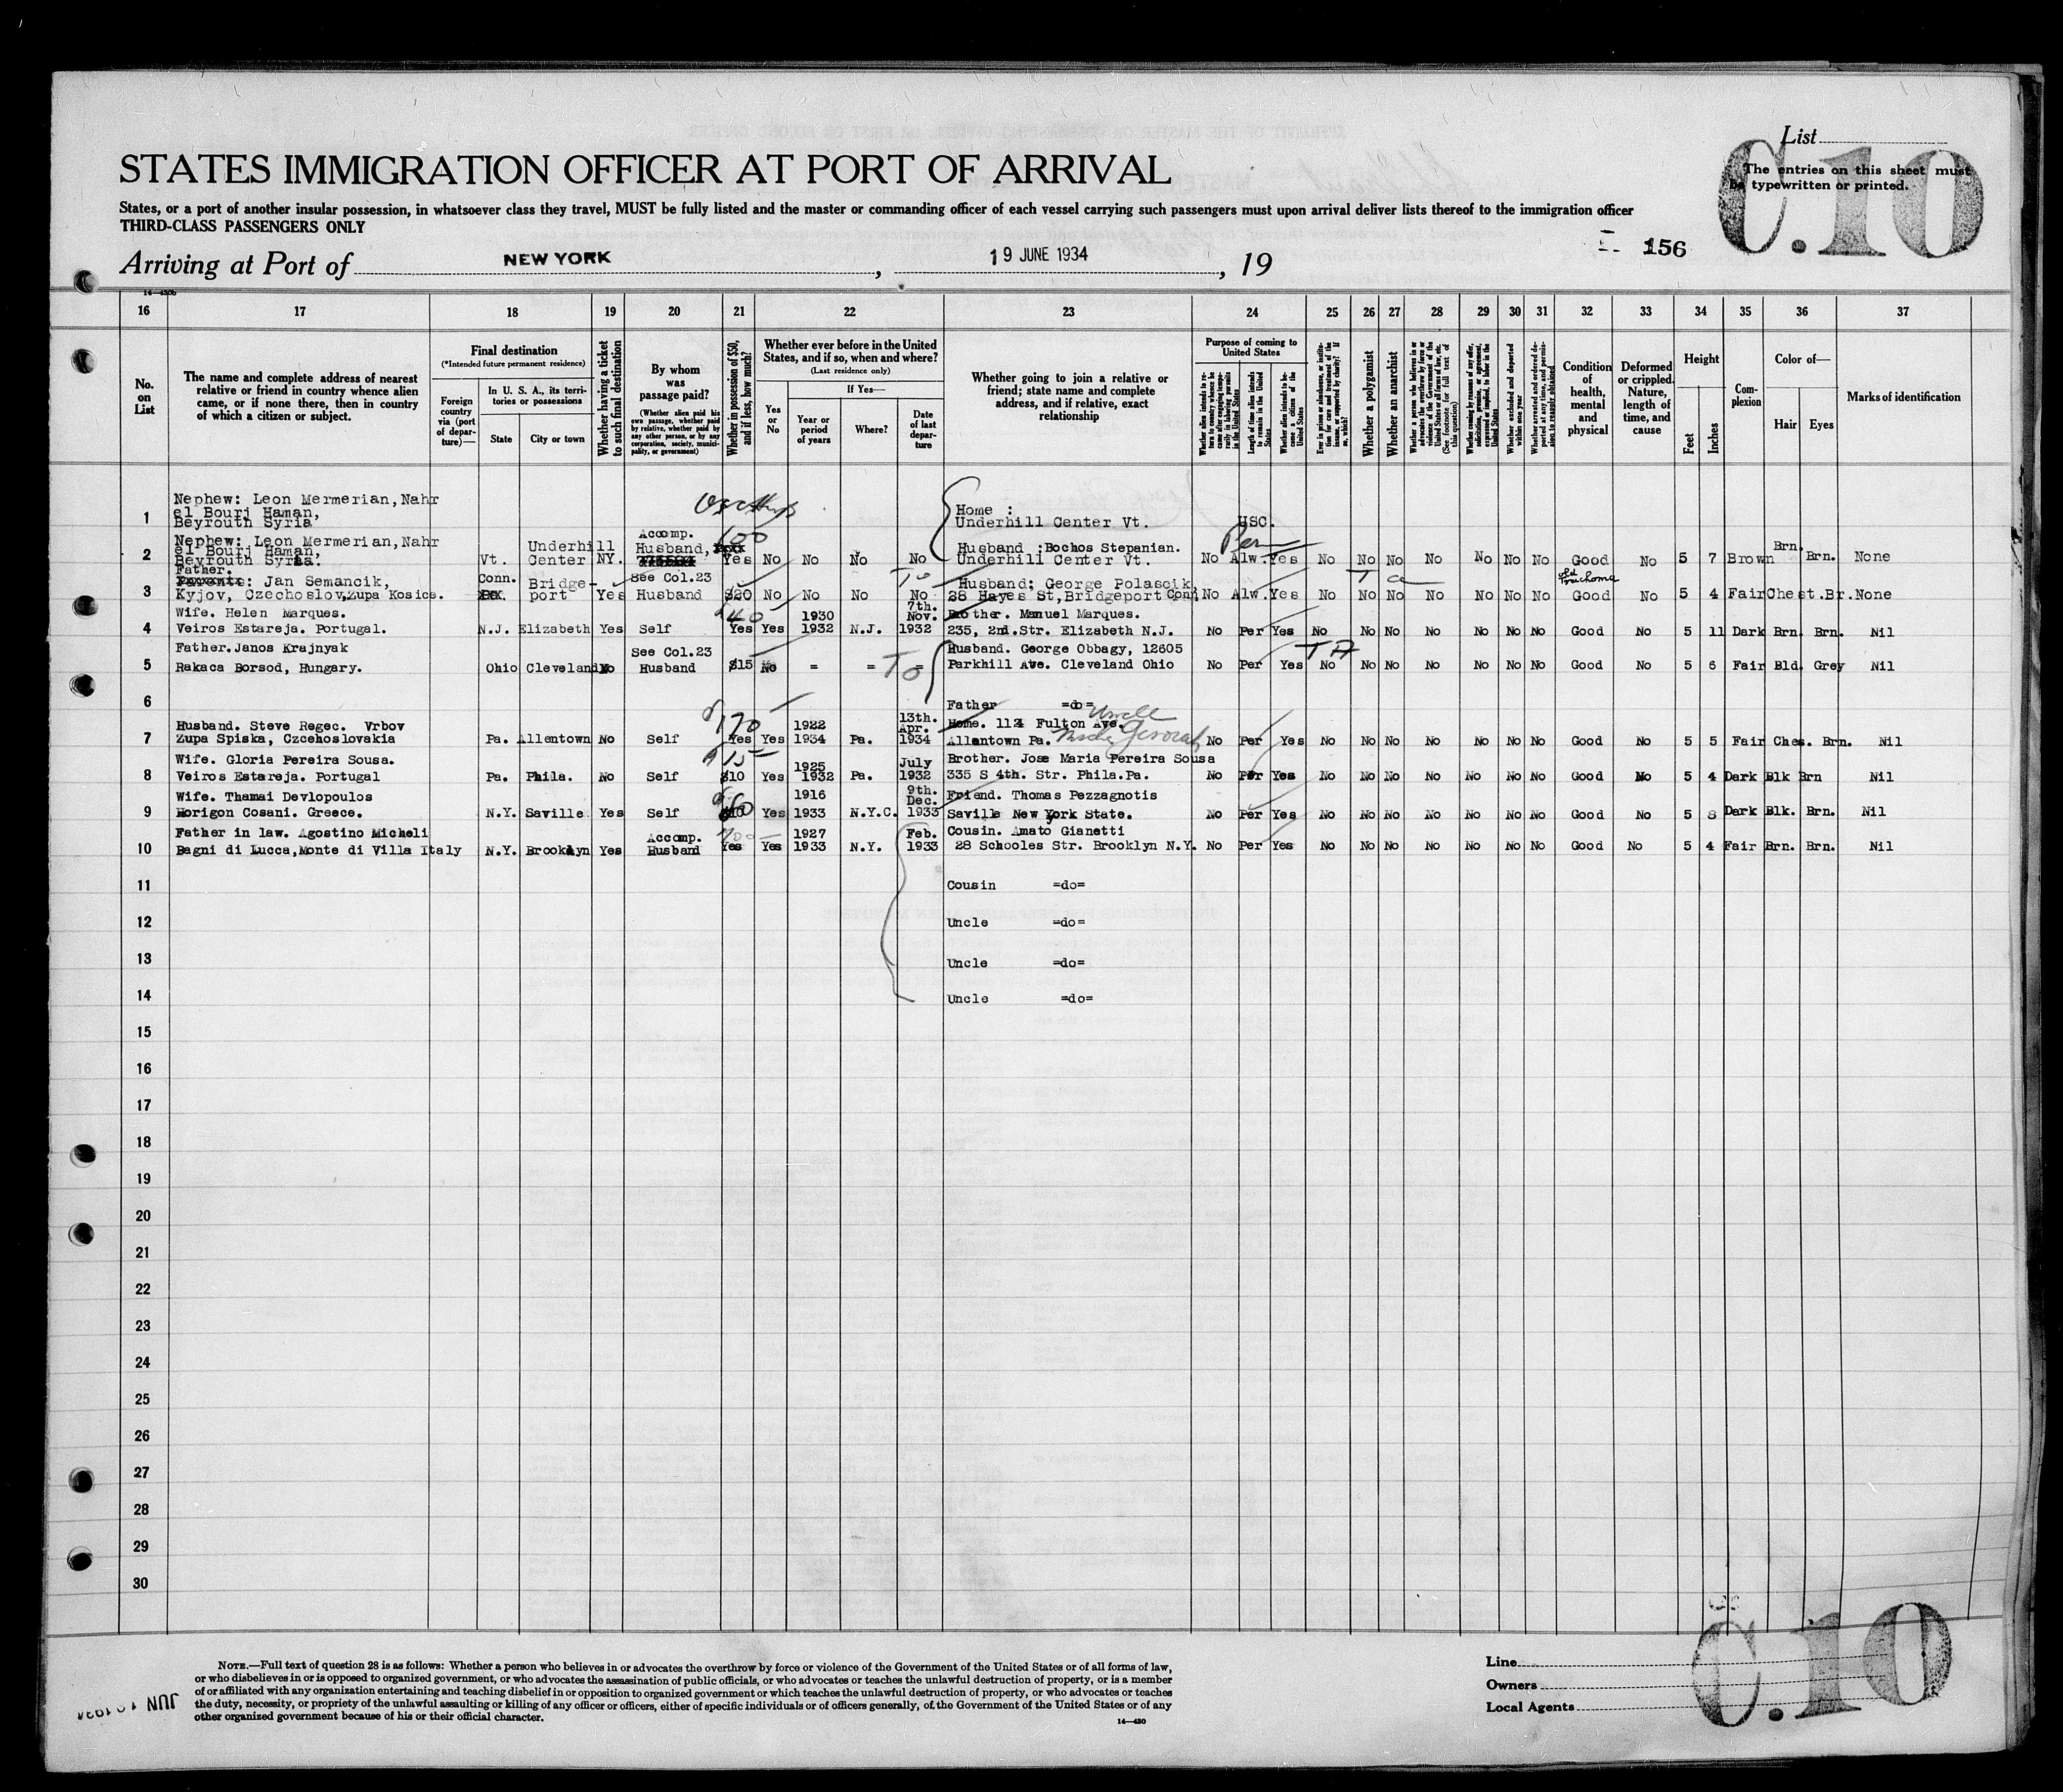 List
C.10
The entries on this sheet must
be typewritten or printed.
STATES IMMIGRATION OFFICER AT PORT OF ARRIVAL
States, or a port of another insular possession, in whatsoever class they travel, MUST be fully listed and the master or commanding officer of each vessel carrying such passengers must upon arrival deliver lists thereof to the immigration officer
THIRD-CLASS PASSENGERS ONLY
156
Arriving at Port of NEW YORK, 19 JUNE 1934, 19
14—430b
16 17 18 19 20 21 22 23 24 25 26 27 28 29 30 31 32 33 34 35 36 37
No. on List
The name and complete address of nearest relative or friend in country whence alien came, or if none there, then in country of which a citizen or subject.
Final destination
(*Intended future permanent residence)
Foreign country via (port of departure)—
In U. S. A., its territories or possessions
State
City or town
Whether having a ticket to such final destination
By whom was passage paid?
(Whether alien paid his own passage, whether paid by relative, whether paid by any other person, or by any corporation, society, municipality, or government)
Whether in possession of $50, and if less, how much?
Whether ever before in the United States, and if so, when and where?
(Last residence only)
Yes or No
If Yes—
Year or period of years
Where?
Date of last departure
Whether going to join a relative or friend; state name and complete address, and if relative, exact relationship
Purpose of coming to United States
Length of time alien intends to remain in the United States
Whether alien intends to become a citizen of the United States
Whether a polygamist
Whether an anarchist
Whether excluded and deported within one year
Condition of health, mental and physical
Deformed or crippled. Nature, length of time, and cause
Height
Feet
Inches
Complexion
Color of—
Hair
Eyes
Marks of identification
1 Nephew: Leon Mermerian, Nahr el Bourj Haman, Beyrouth Syria Home : Underhill Center Vt. USC.
2 Nephew: Leon Mermerian, Nahr el Bourj Haman, Beyrouth Syria. Vt. Underhill Center NY. Accomp. Husband, 600 Yes No No No No Husband :Bochos Stepanian. Underhill Center Vt. Perm No Alw. Yes No No No No No No No Good No 5 7 Brown Brn. Brn. None
3 Father. Jan Semancik, Kyjov, Czechoslov, Zupa Kosice. Conn. Bridgeport Yes See Col.23 Husband $20 No No No No Husband; George Polascik, 28 Hayes St, Bridgeport Conn, No Alw. Yes No No No No No No No old Trachoma Good No 5 4 Fair Chest. Br. None
4 Wife. Helen Marques. Veiros Estareja. Portugal. N.J. Elizabeth Yes Self $40 Yes Yes 1930 1932 N.J. 7th. Nov. 1932 Brother. Manuel Marques. 235, 2nd. Str. Elizabeth N.J. No Per Yes No No No No No No No Good No 5 11 Dark Brn. Brn. Nil
5 Father. Janos Krajnyak Rakaca Borsod, Hungary. Ohio Cleveland No See Col.23 Husband $15 No = = = Husband. George Obbagy, 12605 Parkhill Ave. Cleveland Ohio No Per Yes No No No No No No No Good No 5 6 Fair Bld. Grey Nil
6 Father =do=
7 Husband. Steve Regec. Vrbov Zupa Spiska, Czcehoslovakia Pa. Allentown No Self $170 Yes Yes 1922 1934 Pa. 13th. Apr. 1934 Home. 1124 Fulton Ave. Allentown Pa. Uncle No Per Yes No No No No No No No Good No 5 5 Fair Ches. Brn. Nil
8 Wife. Gloria Pereira Sousa. Veiros Estareja. Portugal Pa. Phila. No Self $10 Yes 1925 1932 Pa. July 1932 Brother. Jose Maria Pereira Sousa 335 S 4th. Str. Phila. Pa. No Per Yes No No No No No No No Good No 5 4 Dark Blk Brn Nil
9 Wife. Thamai Devlopoulos Horigon Cosani. Greece. N.Y. Saville Yes Self Yes 1916 1933 N.Y.C. 9th. Dec. 1933 Friend. Thomas Pezzagnotis Saville New York State. No Per Yes No No No No No No No Good No 5 8 Dark Blk. Brn. Nil
10 Father in law. Agostino Micheli Bagni di Lucca, Monte di Villa Italy N.Y. Brooklyn Yes Accomp. Husband Yes Yes 1927 1933 N.Y. Feb. 1933 Cousin. Amato Gianetti 28 Schooles Str. Brooklyn N.Y. No Per Yes No No No No No No No Good No 5 4 Fair Brn. Brn. Nil
11 Cousin =do=
12 Uncle =do=
13 Uncle =do=
14 Uncle =do=
15
16
17
18
19
20
21
22
23
24
25
26
27
28
29
30
NOTE.—Full text of question 28 is as follows: Whether a person who believes in or advocates the overthrow by force or violence of the Government of the United States or of all forms of law,
or who disbelieves in or is opposed to organized government, or who advocates the assassination of public officials, or who advocates or teaches the unlawful destruction of property, or is a member
of or affiliated with any organization entertaining and teaching disbelief in or opposition to organized government or which teaches the unlawful destruction of property, or who advocates or teaches
the duty, necessity, or propriety of the unlawful assaulting or killing of any officer or officers, either of specific individuals or of officers generally, of the Government of the United States or of any
other organized government because of his or their official character.
14—430
Line
Owners
Local Agents
C.10
JUN 19 1934